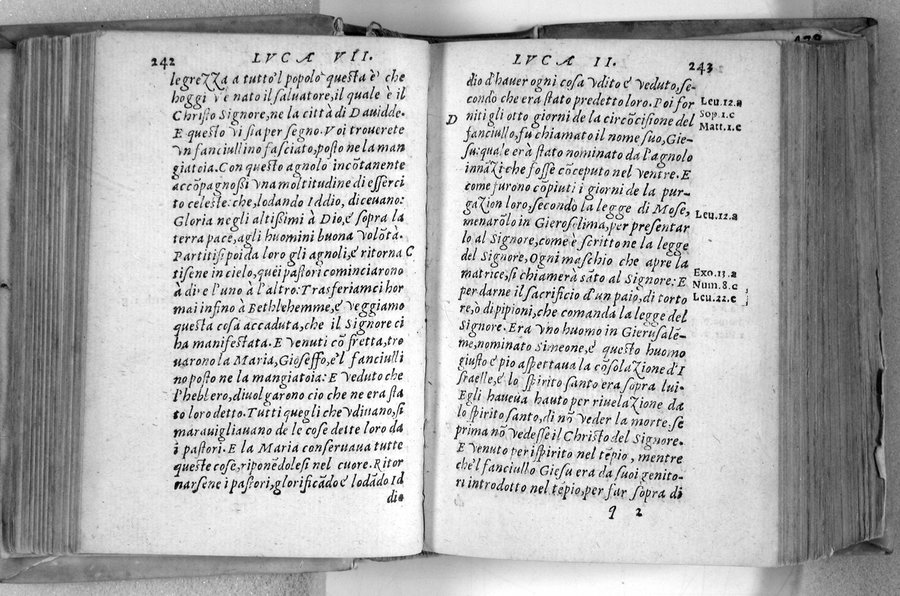 242
LVCAE VII.
legrezza a tutto 'l popolo questa è che
hoggi v'e nato il salvatore, il quale è il
Christo Signore, ne la città di Dauidde.
E questo vi sia per segno. Voi trouerete
vn fanciullino fasciato, posto ne la man
giatoia. Con questo agnolo incōtanente
accōpagnoßi vna moltitudine di esserci
to celeste: che, lodando Iddio, diceuano:
Gloria negli altißimi à Dio, è sopra la
terra pace, agli huomini buona volōtà.
Partitisi poi da loro gli agnoli, è ritorna C
tisene in cielo, quei pastori cominciarono
à dire l'uno à l'altro: Trasferiamci hor
mai infino à Bethlehemme, è veggiamo
questa cosa accaduta, che il Signore ci
ha manifestata. E venuti cō fretta, tro
uarono la Maria, Gioseffo, è'l fanciulli
no posto ne la mangiatoia: E veduto che
l'hebbero, diuolgarono cio che ne era sta
to loro detto. Tutti quegli che vdiuano, si
marauigliauano de le cose dette loro da
i pastori. E la Maria conseruaua tutte
queste cose, riponēdolesi nel cuore. Ritor
narsene i pastori, glorificādo è lodādo Id
dio
LVCAE II.
243
dio d'hauer ogni cosa vdito è veduto, se-
condo che era stato predetto loro. Poi for
D niti gli otto giorni de la circōcisione del
fanciullo, fu chiamato il nome suo, Gie-
su: quale erà stato nominato da l'agnolo
innāzi che fosse cōceputo nel ventre. E
come furono cōpiuti i giorni de la pur-
gazion loro, secondo la legge di Mose,
menarōlo in Gierosolima, per presentar
lo al Signore, come è scritto ne la legge
del Signore, Ogni maschio che apre la
matrice, si chiamerà sāto al Signore: E
per darne il sacrificio d'un paio, di torto
re, ò di pipioni, che comanda la legge del
Signore. Era vno huomo in Gierusalē-
me, nominato Simeone, è questo huomo
giusto è pio aspettaua la cōsolazione d'I
sraelle, è lo spirito santo era sopra lui.
Egli haueua hauto per riuelazione da
lo spirito santo, di nō veder la morte, se
prima nō vedesse il Christo del Signore.
E venuto per ispirito nel tēpio, mentre
che'l fanciullo Giesu era da suoi genito-
ri introdotto nel tēpio, per far sopra di
q 2
Leu.12.a
Sop.1.c
Matt.1.c
Leu.12.a
Exo.13.a
Num.8.c
Leu.22.c